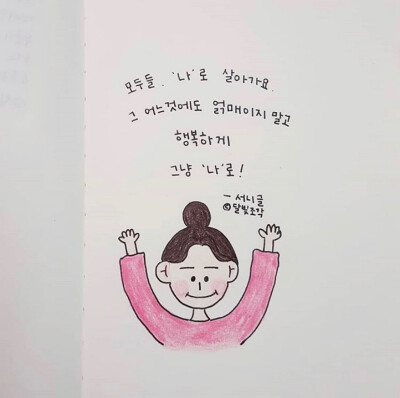 모두들, '나'로 살아가요.
그 어느것에도 얽매이지 말고
행복하게
그냥 '나'로!
- 서니글
©달빛조각